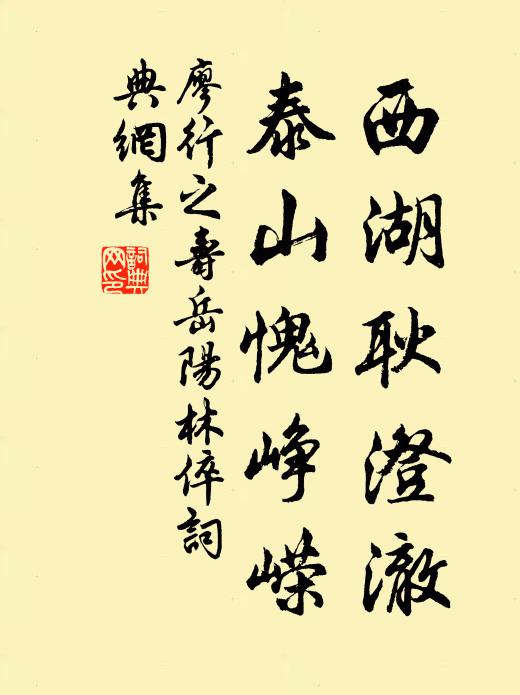 西湖耿澄澈
泰山愧峥嵘
廖行之壽岳陽林倅詞
典網集
詞典网印